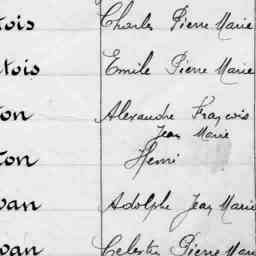 tois Charles Pierre Marie
tois Emile Pierre Marie
ton Alexandre François
Jean Marie
ton Henri
van Adolphe Jean Marie
van Celestin Pierre Marie